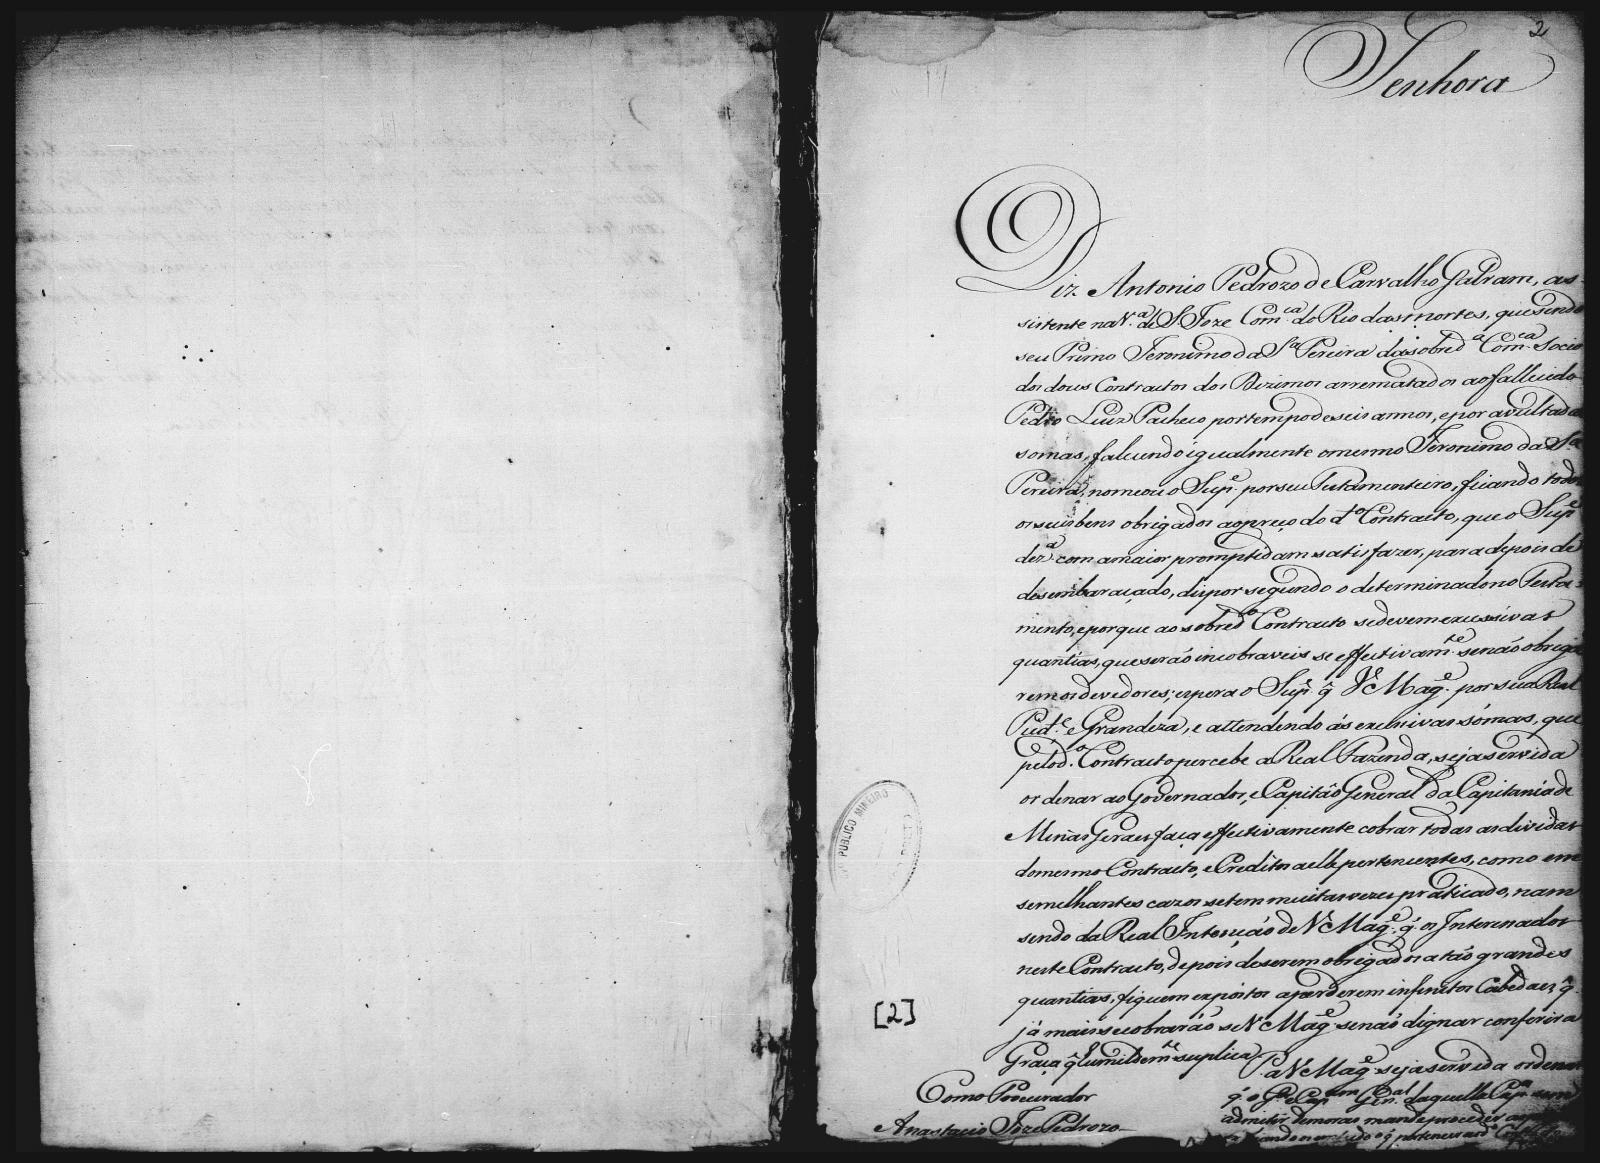 2
Senhora
Diz Antonio Pedrozo de Carvalho Galvam, as-
sistente na V.ª de S. Joze Com.ca do Rio das mortes, que sendo
seu Primo Jeronimo da S.ª Pereira da sobred.ª Com.ca Socio
dos dous Contractos dos Dizimos arrematados ao fallecido
Pedro Luiz Pacheco por tempo de seis annos, e por avultadas
somas, falecendo igualmente o mesmo Jeronimo da S.ª
Pereira, nomeou o Sup.e por seu Testamenteiro, ficando todos
os seus bens obrigados ao preço do d.º Contracto, que o Sup.e
dez.ª com a maior promptidam satisfazer, para depois de
desembaraçado, dispor segundo o determinado no Testa-
mento, e porque ao sobred.º Contracto se devem excessivas
quantias, que serão incobraveis se effectivam.te senão obriga
rem os devedores; espera o Sup.e q̃ V.e Mag.e por sua Real
Pied.e e Grandeza, e attendendo ás excessivas sómas, que
pelo d.º Contracto percebe a Real Fazenda, seja servida
ordenar ao Governador, e Capitão General da Capitania de
Minas Geraes faça effectivamente cobrar todas as dividas
do mesmo Contracto, e Creditos a elle pertencentes, como em
semelhantes cazos se tem muitas vezes praticado, nam
sendo da Real Intenção de V.e Mag.e, q̃ os Interesados
neste Contracto, depois de serem obrigados a tão grandes
quantias, fiquem expostos a perderem infinitos Cabedaes, q̃
já mais se cobrarão se V.e Mag.e senão dignar conferir a
Graça q̃ humildem.te suplica
P. a V.e Mag.e seja servida ordenar
q̃ o G.or e Cap.am Gen.al daquella Cap.nia sem
admitir demoras mande proceder
Como Procurador
Anastacio Joze Pedrozo
PUBLICO MINEIRO
[2]